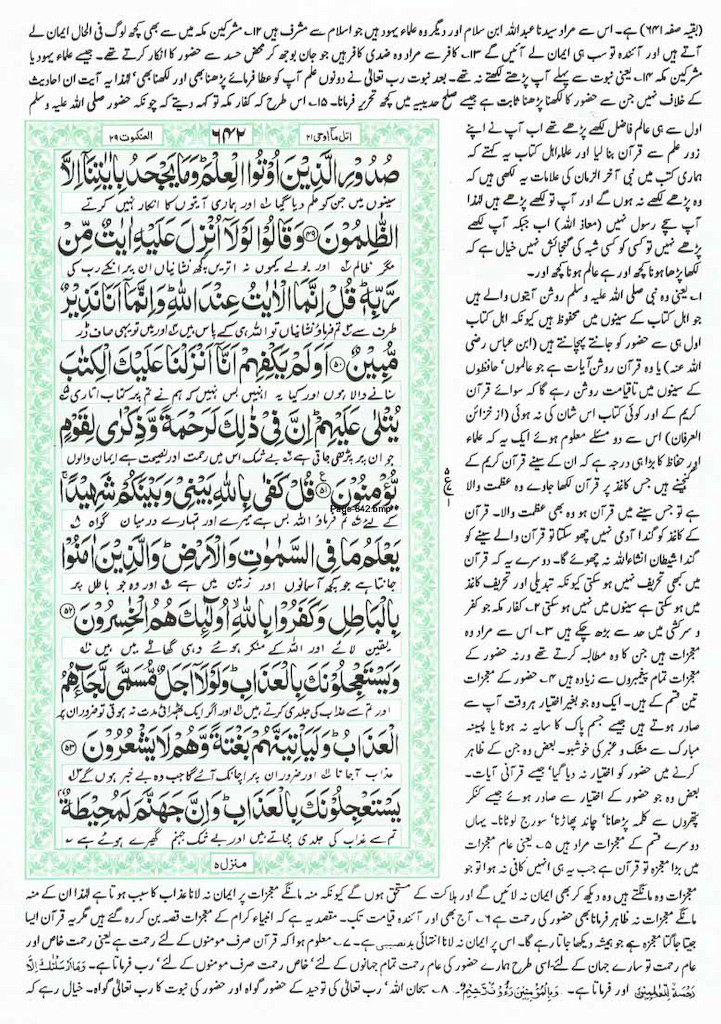 (بقیہ صفحہ ۶۴۱) ہے۔ اس سے مراد سیدنا عبداللہ ابن سلام اور دیگر وہ علماء یہود ہیں جو اسلام سے مشرف ہیں ۱۲۔ مشرکین مکہ میں سے بھی کچھ لوگ فی الحال ایمان لے
آتے ہیں اور آئندہ تو سب ہی ایمان لے آئیں گے ۱۳۔ کافر سے مراد وہ ضدی کافر ہیں جو جان بوجھ کر محض حسد سے حضور کا انکار کرتے تھے۔ جیسے علماء یہود یا
مشرکین مکہ ۱۴۔ یعنی نبوت سے پہلے آپ پڑھتے لکھتے نہ تھے۔ بعد نبوت رب تعالیٰ نے دونوں علم آپ کو عطا فرمائے پڑھنا بھی اور لکھنا بھی' لہٰذا یہ آیت ان احادیث
کے خلاف نہیں جن سے حضور کا لکھنا پڑھنا ثابت ہے جیسے صلح حدیبیہ میں کچھ تحریر فرمانا۔ ۱۵۔ اس طرح کہ کفار مکہ تو کہہ دیتے کہ چونکہ حضور صلی اللہ علیہ وسلم
اول سے ہی عالم فاضل لکھے پڑھے تھے اب آپ نے اپنے
زور علم سے قرآن بنا لیا اور علماء اہل کتاب یہ کہتے کہ
ہماری کتب میں نبی آخر الزمان کی علامات یہ لکھی ہیں کہ
وہ پڑھے لکھے نہ ہوں گے اور آپ تو لکھے پڑھے ہیں لہٰذا
آپ سچے رسول نہیں (معاذ اللہ) اب جبکہ آپ لکھے
پڑھے نہیں تو کسی کو کسی شبہ کی گنجائش نہیں خیال رہے کہ
لکھا پڑھا ہونا کچھ اور ہے عالم ہونا کچھ اور۔
۱۔ یعنی وہ نبی صلی اللہ علیہ وسلم روشن آیتوں والے ہیں
جو اہل کتاب کے سینوں میں محفوظ ہیں کیونکہ اہل کتاب
اول ہی سے حضور کو جانتے پہچانتے ہیں (ابن عباس رضی
اللہ عنہ) یا وہ قرآن روشن آیات ہے جو عالموں' حافظوں
کے سینوں میں تاقیامت روشن رہے گا کہ سوائے قرآن
کریم کے اور کوئی کتاب اس شان کی نہ ہوئی (از خزائن
العرفان) اس سے دو مسئلے معلوم ہوئے ایک یہ کہ علماء
اور حفاظ کا بڑا ہی درجہ ہے کہ ان کے سینے قرآن کریم کے
گنجینے ہیں جس کاغذ پر قرآن لکھا جاوے وہ عظمت والا
ہے تو جس سینے میں قرآن ہو وہ بھی عظمت والا۔ قرآن
کے کاغذ کو گندا آدمی نہیں چھو سکتا تو قرآن والے سینے کو
گندا شیطان انشاء اللہ نہ چھوئے گا۔ دوسرے یہ کہ قرآن
میں کبھی تحریف نہیں ہو سکتی کیونکہ تبدیلی اور تحریف کاغذ
میں ہو سکتی ہے سینوں میں نہیں ہو سکتی ۲۔ کفار مکہ جو کفر
و سرکشی میں حد سے بڑھ چکے ہیں ۳۔ اس سے مراد وہ
معجزات ہیں جن کا وہ مطالبہ کرتے تھے ورنہ حضور کے
معجزات تمام پیغمبروں سے زیادہ ہیں ۴۔ حضور کے معجزات
تین قسم کے ہیں۔ ایک وہ جو بغیر اختیار ہر وقت آپ سے
صادر ہوتے ہیں جیسے جسم پاک کا سایہ نہ ہونا یا پسینہ
مبارک سے مشک و عنبر کی خوشبو۔ بعض وہ جن کے ظاہر
کرنے میں حضور کو اختیار نہ دیا گیا' جیسے قرآنی آیات۔
بعض وہ جو حضور کے اختیار سے صادر ہوئے جیسے کنکر
پتھروں سے کلمہ پڑھانا' چاند پھاڑنا' سورج لوٹانا۔ یہاں
دوسرے قسم کے معجزات مراد ہیں ۵۔ یعنی عام معجزات
میں بڑا معجزہ تو قرآن ہے جب یہ ہی انہیں کافی نہ ہوا تو جو
العنکبوت ۲۹ ۶۴۲ اتل ما اوحی ۲۱
صُدُوۡرِ الَّذِيۡنَ اُوۡتُوا الۡعِلۡمَؕ وَمَا يَجۡحَدُ بِاٰيٰتِنَاۤ اِلَّا
سینوں میں جن کو علم دیا گیا اور ہماری آیتوں کا انکار نہیں کرتے
الظّٰلِمُوۡنَ ﴿۴۹﴾ وَقَالُوۡا لَوۡلَاۤ اُنۡزِلَ عَلَيۡهِ اٰيٰتٌ مِّنۡ
مگر ظالم اور بولے کیوں نہ اتریں کچھ نشانیاں ان پر انکے رب کی
رَّبِّهٖؕ قُلۡ اِنَّمَا الۡاٰيٰتُ عِنۡدَ اللّٰهِؕ وَاِنَّمَاۤ اَنَا نَذِيۡرٌ
طرف سے تم فرماؤ نشانیاں تو اللہ ہی کے پاس ہیں اور میں تو یہی صاف ڈر
مُّبِيۡنٌ ﴿۵۰﴾ اَوَلَمۡ يَكۡفِهِمۡ اَنَّاۤ اَنۡزَلۡنَا عَلَيۡكَ الۡكِتٰبَ
سنانے والا ہوں اور کیا یہ انہیں بس نہیں کہ ہم نے تم پر کتاب اتاری
يُتۡلٰى عَلَيۡهِمۡؕ اِنَّ فِىۡ ذٰلِكَ لَرَحۡمَةً وَّذِكۡرٰى لِقَوۡمٍ
جو ان پر پڑھی جاتی ہے بے شک اس میں رحمت اور نصیحت ہے ایمان والوں
يُّؤۡمِنُوۡنَ ﴿۵۱﴾ قُلۡ كَفٰى بِاللّٰهِ بَيۡنِىۡ وَبَيۡنَكُمۡ شَهِيۡدًاۚ
Page-642.bmp
کے لیے تم فرماؤ اللہ بس ہے میرے اور تمہارے درمیان گواہ
يَعۡلَمُ مَا فِى السَّمٰوٰتِ وَالۡاَرۡضِؕ وَالَّذِيۡنَ اٰمَنُوۡا
جانتا ہے جو کچھ آسمانوں اور زمین میں ہے اور وہ جو باطل پر
بِالۡبَاطِلِ وَكَفَرُوۡا بِاللّٰهِۙ اُولٰٓٮِٕكَ هُمُ الۡخٰسِرُوۡنَ ﴿۵۲﴾
یقین لائے اور اللہ کے منکر ہوئے وہی گھاٹے میں ہیں
وَيَسۡتَعۡجِلُوۡنَكَ بِالۡعَذَابِؕ وَلَوۡلَاۤ اَجَلٌ مُّسَمًّى لَّجَآءَهُمُ
اور تم سے عذاب کی جلدی کرتے ہیں اور اگر ایک ٹھہرائی مدت نہ ہوتی تو ضرور ان پر
الۡعَذَابُؕ وَلَيَاۡتِيَنَّهُمۡ بَغۡتَةً وَّهُمۡ لَا يَشۡعُرُوۡنَ ﴿۵۳﴾
عذاب آجاتا اور ضرور ان پر اچانک آئے گا جب وہ بے خبر ہوں گے
يَسۡتَعۡجِلُوۡنَكَ بِالۡعَذَابِؕ وَاِنَّ جَهَنَّمَ لَمُحِيۡطَةٌۢ
تم سے عذاب کی جلدی مچاتے ہیں اور بے شک جہنم گھیرے ہوئے ہے
منزل ۵
معجزات وہ مانگتے ہیں وہ دیکھ کر بھی ایمان نہ لائیں گے اور ہلاکت کے مستحق ہوں گے کیونکہ منہ مانگے معجزات پر ایمان نہ لانا عذاب کا سبب ہوتا ہے لہٰذا ان کے منہ
مانگے معجزات نہ ظاہر فرمانا بھی حضور کی رحمت ہے ۶۔ آج بھی اور آئندہ قیامت تک۔ مقصد یہ ہے کہ انبیاء کرام کے معجزات قصہ بن کر رہ گئے ہیں مگر یہ قرآن ایسا
جیتا جاگتا معجزہ ہے جو ہمیشہ دیکھا جاتا رہے گا۔ اس پر ایمان نہ لانا انتہائی بدنصیبی ہے۔ ۷۔ معلوم ہوا کہ قرآن صرف مومنوں کے لئے رحمت ہے یعنی رحمت خاص اور
عام رحمت تو سارے جہان کے لئے۔ اسی طرح ہمارے حضور کی عام رحمت تمام جہانوں کے لئے' خاص رحمت صرف مومنوں کے لئے' رب فرماتا ہے۔ وَمَآ اَرۡسَلۡنٰكَ اِلَّا
رَحۡمَةً لِّلۡعٰلَمِيۡنَ اور فرماتا ہے۔ وَبِالۡمُؤۡمِنِيۡنَ رَءُوۡفٌ رَّحِيۡمٌ۔ ۸۔ سبحان اللہ' رب تعالیٰ کی توحید کے حضور گواہ اور حضور کی نبوت کا رب تعالیٰ گواہ۔ خیال رہے کہ